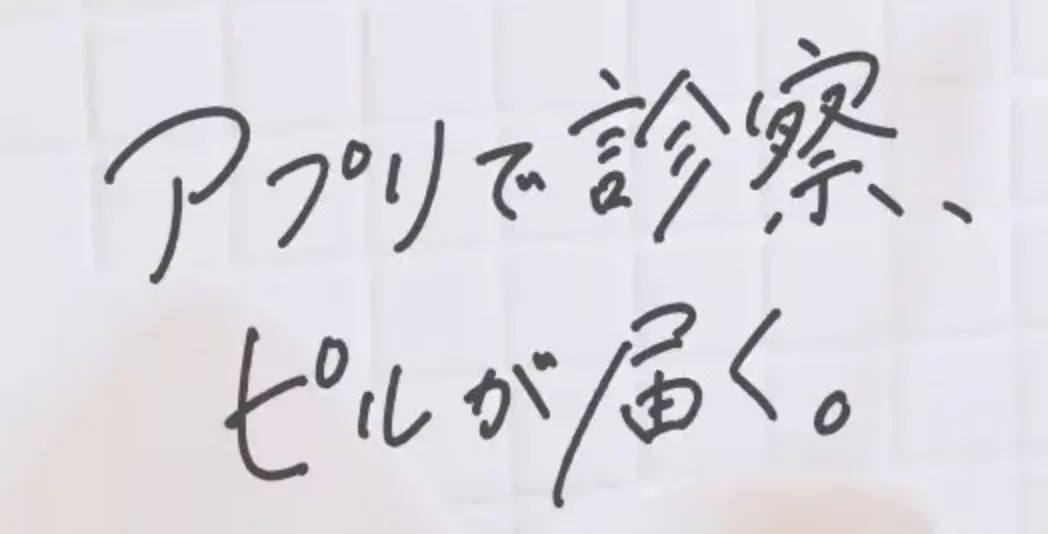 アプリで診察、
ピルが届く。